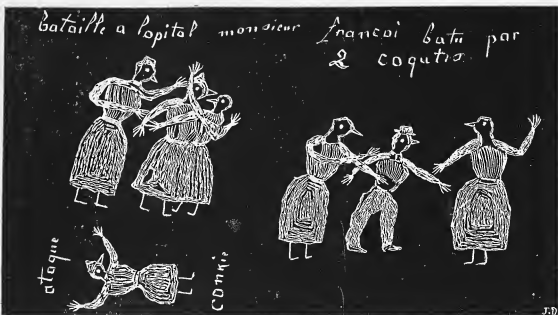 bataille a lopital monsieur francoi batu par
2 coqutes
ataque
conkie
J.D